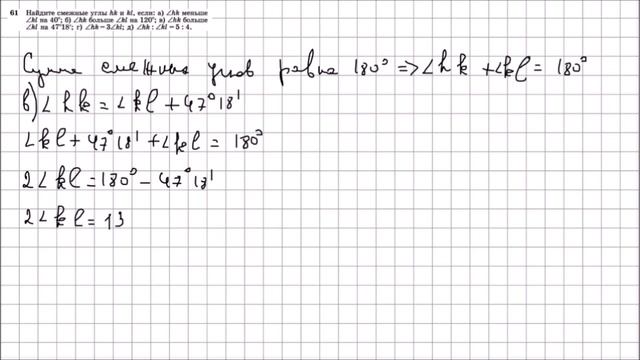 61 Найдите смежные углы hk и kl, если: а) ∠hk меньше
∠kl на 40°; б) ∠hk больше ∠kl на 120°; в) ∠hk больше
∠kl на 47°18′; г) ∠hk = 3∠kl; д) ∠hk : ∠kl = 5 : 4.
Сумма смежных углов равна 180° ⇒ ∠hk + ∠kl = 180°
в) ∠hk = ∠kl + 47°18'
∠kl + 47°18' + ∠kl = 180°
2∠kl = 180° - 47°18'
2∠kl = 13